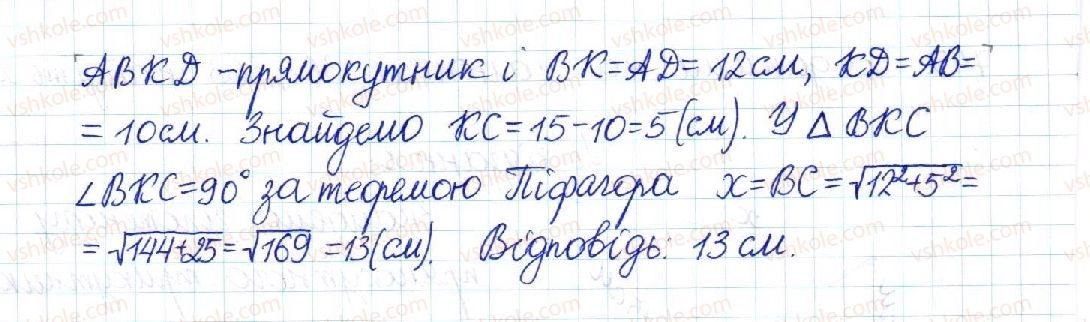 ABKD – прямокутник і BK=AD=12см, KD=AB=
=10см. Знайдемо KC=15-10=5(см). У △ BKC
∠BKC=90° за теоремою Піфагора x=BC=√12²+5²=
=√144+25=√169=13(см). Відповідь: 13 см.